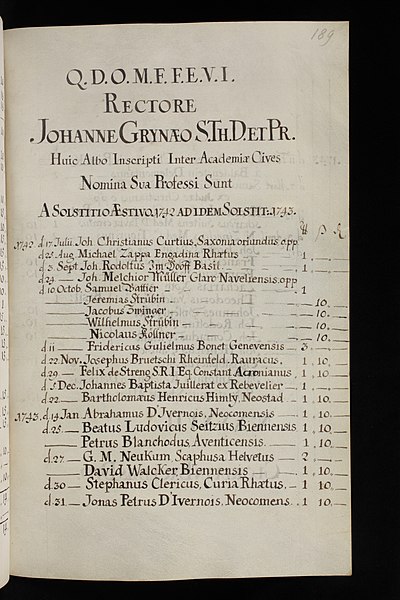 189
Q. D. O. M. F. F. E. V. I.
RECTORE
JOHANNE GRYNÆO S. TH. D. ET PR.
Huic Albo Inscripti Inter Academiæ Cives
Nomina Sua Professi Sunt
A SOLSTITIO ÆSTIVO 1742 AD IDEM SOLSTIT: 1743.
₰ β
1742. d. 17. Julii Joh. Christianus Curtius, Saxonia oriundus. opp
d. 25. Aug. Michael Zappa Engadina Rhætus 1.
d. 3. Sept. Joh. Rodolfus Im Hooff Basil. 1.
d. 24. Joh. Melchior Müller Glaro Naveliensis. opp
d. 10. Octob. Samuel Battier 1
Jeremias Strübin 10.
Jacobus Zwinger 10.
Wilhelmus Strübin 10.
Nicolaus Köllner 10.
d. 11 Fridericus Gulielmus Bonet Genevensis 3.
d. 22. Nov. Josephus Bruetschi Rheinfeld. Rauracus, 1. 10.
d. 29. Felix de Streng S. R. I. Eq. Constant. Acronianus 1. 10.
d. 5. Dec. Johannes Baptista Juillerat ex Rebevelier 1.
d. 22. Bartholomæus Henricus Himly, Neostad 1. 10.
1743. d. 14. Jan Abrahamus D'Ivernois, Neocomensis 1. 10.
d. 25. Beatus Ludovicus Seitzius Biennensis 1. 10.
Petrus Blanchodus, Aventicensis. 1. 10.
d. 27. G. M. Neukum, Scaphusa Helvetus 2.
David Walcker Biennensis 1. 10.
d. 30 Stephanus Clericus, Curia Rhætus, 1 10.
d. 31 Jonas Petrus D'Ivernois, Neocomens. 1 10.